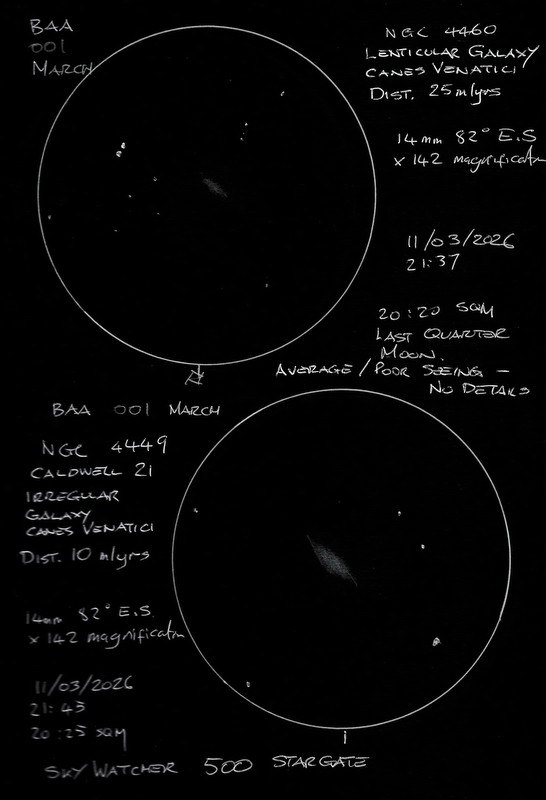 BAA
001
MARCH
NGC 4460
LENTICULAR GALAXY
CANES VENATICI
DIST. 25 mlyrs
14mm 82° E.S
x 142 magnificatn
11/03/2026
21:37
20:20 SQM
LAST QUARTER
MOON.
AVERAGE / POOR SEEING –
NO DETAILS
BAA 001 MARCH
NGC 4449
CALDWELL 21
IRREGULAR
GALAXY
CANES VENATICI
DIST. 10 mlyrs
14mm 82° E.S.
x 142 magnificatn
11/03/2026
21:45
20:25 SQM
SKY WATCHER 500 STARGATE